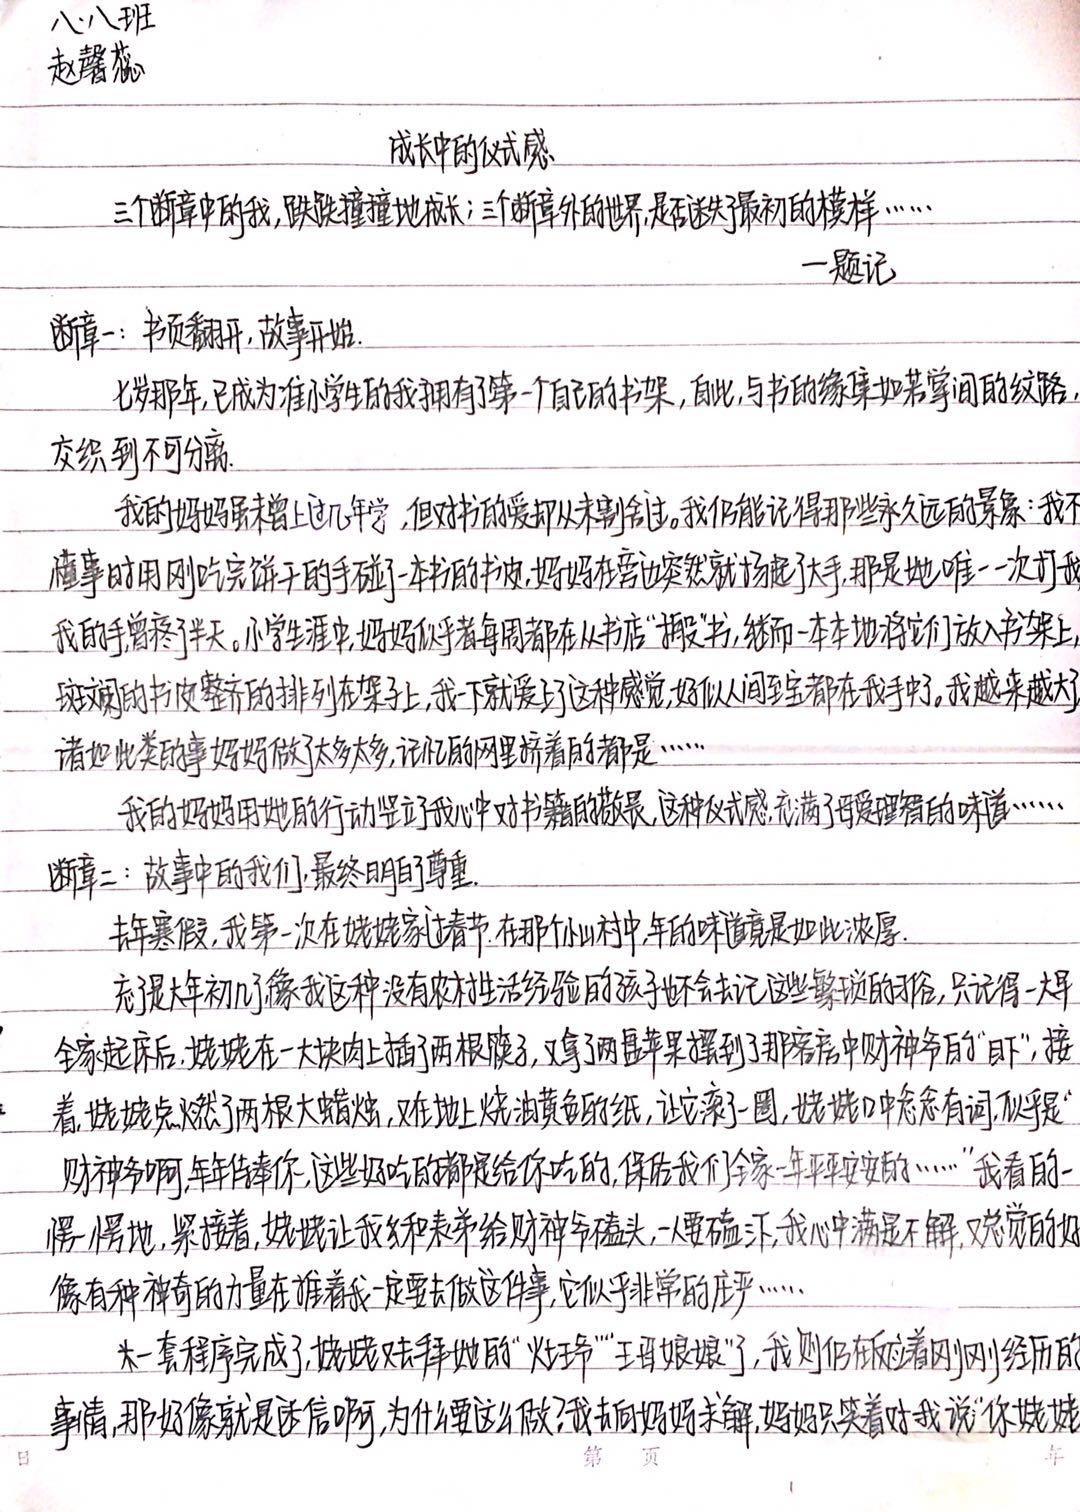 八.八班
赵馨蕊
成长中的仪式感
三个断章中的我,跌跌撞撞地成长;三个断章外的世界,是否迷失了最初的模样……
一题记
断章一:书页翻开,故事开始.
七岁那年,已成为准小学生的我拥有了第一个自己的书架,自此,与书的缘集如若掌间的纹路,
交织到不可分离.
我的妈妈虽未曾上过几年学,但对书的爱却从未割舍过。我仍能记得那些永久远的景象:我不
懂事时用刚吃完饼干的手碰了一本书的书皮,妈妈在旁边突然就扬起了大手,那是她唯一一次打我
我的手曾疼了半天。小学生涯中,妈妈似乎者每周都在从书店“搬”书,继而一本本地将它们放入书架上,
斑斓的书皮整齐的排列在架子上,我一下就爱上了这种感觉,好似人间至宝都在我手中了。我越来越大了
诸如此类的事妈妈做了太多太多,记忆的网里挤着的都是……
我的妈妈用她的行动竖立了我心中对书籍的敬畏,这种仪式感,充满了母爱理智的味道……
断章二:故事中的我们,最终明白了尊重.
去年寒假,我第一次在姥姥家过春节.在那个小山村中,年的味道竟是如此浓厚.
忘了是大年初几了,像我这种没有农村生活经验的孩子也不会去记这些繁琐的习俗,只记得一大早
全家起床后.姥姥在一大块肉上插了两根筷子,又拿了两盘苹果摆到了那客房中财神爷的“目下”,接
着,姥姥点燃了两根大蜡烛,又在地上烧油黄色的纸,让它滚了一圈,姥姥口中念念有词,似乎是“
财神爷啊,年年侍奉你,这些好吃的都是给你吃的,保佑我们全家一年平平安安的……”我看的一
愣一愣地,紧接着,姥姥让我和表弟给财神爷磕头,一人要磕三下,我心中满是不解,又总觉的好
像有种神奇的力量在推着我一定要去做这件事,它似乎非常的庄严……
一套程序完成了,姥姥又去拜她的“灶王爷”“王母娘娘”了,我则仍在反应着刚刚经历的
事情,那好像就是迷信啊,为什么要这么做?我去向妈妈求解,妈妈只笑着对我说“你姥姥
日
第 页
年